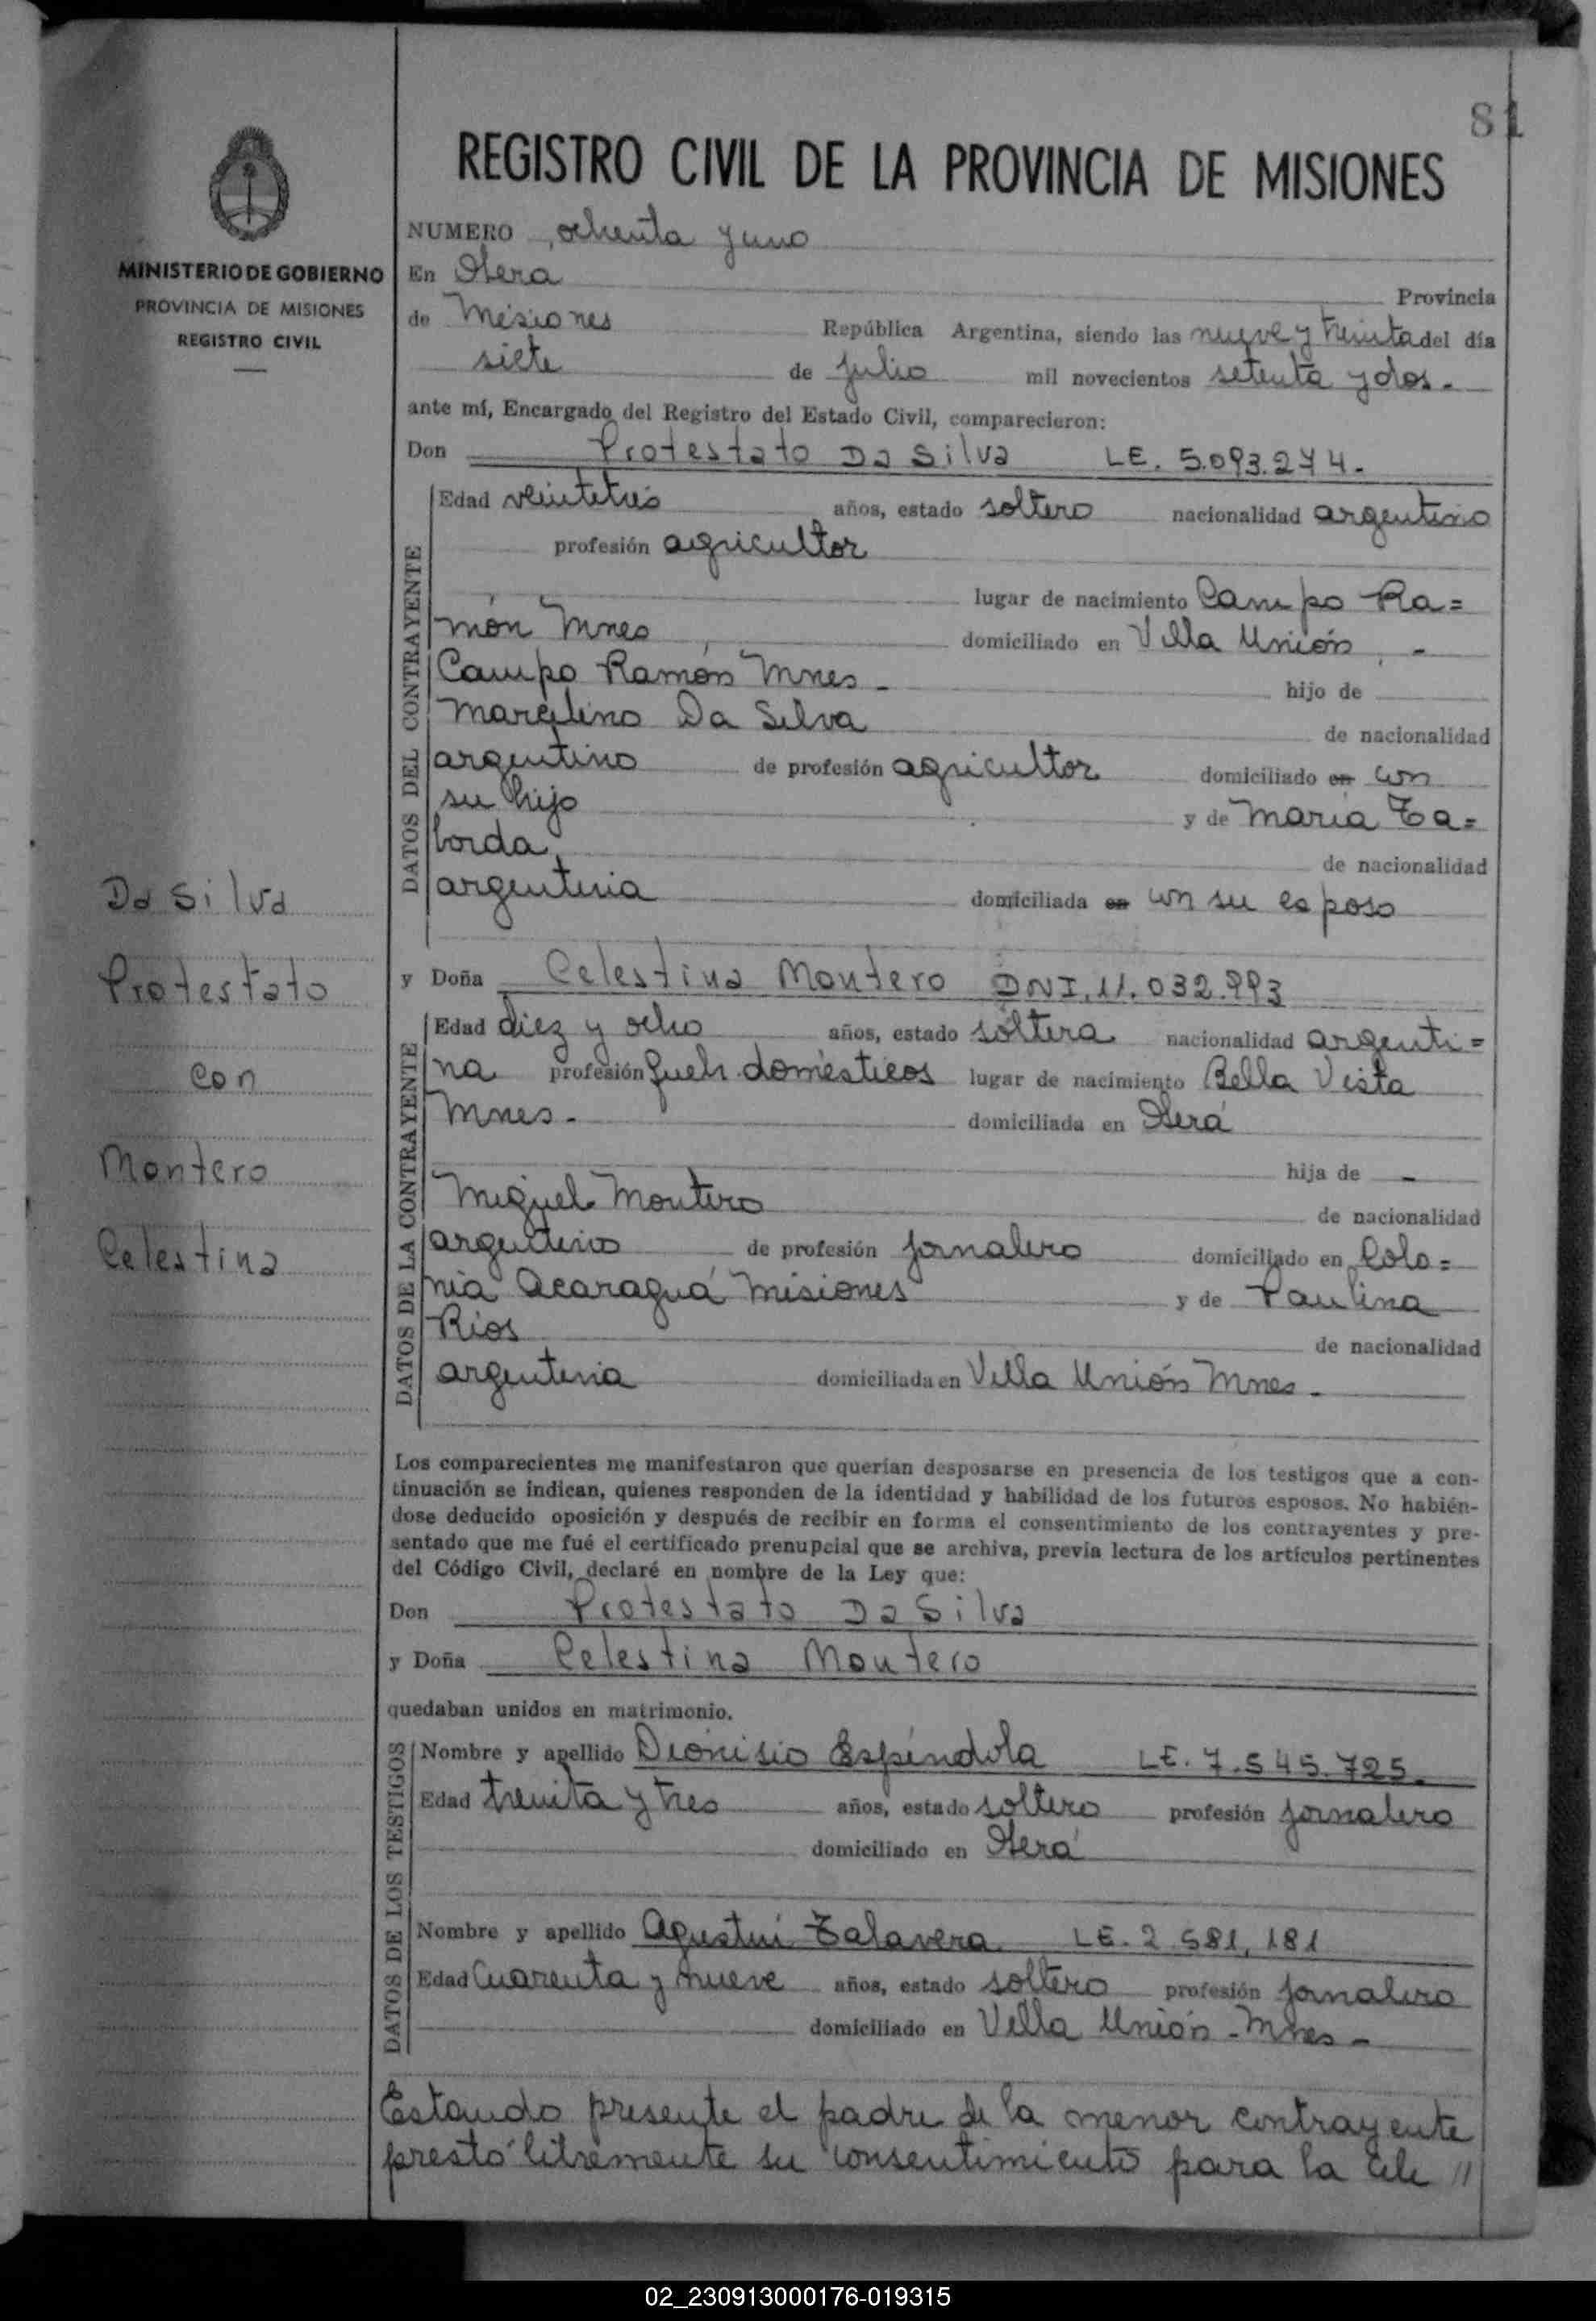 81
REGISTRO CIVIL DE LA PROVINCIA DE MISIONES
MINISTERIO DE GOBIERNO
PROVINCIA DE MISIONES
REGISTRO CIVIL
Da Silva
Protestato
con
Montero
Celestina
NUMERO ochenta y uno
En Oberá Provincia
de Misiones República Argentina, siendo las nueve y treinta del día
siete de julio mil novecientos setenta y dos.
ante mí, Encargado del Registro del Estado Civil, comparecieron:
Don Protestato Da Silva LE. 5.093.274.
DATOS DEL CONTRAYENTE
Edad veintetres años, estado soltero nacionalidad argentino
profesión agricultor
lugar de nacimiento Campo Ra=
món Mnes domiciliado en Villa Unión, -
Campo Ramón Mnes - hijo de
Marcelino Da Silva de nacionalidad
argentino de profesión agricultor domiciliado en con
su hijo y de María Ta=
borda de nacionalidad
argentina domiciliada en con su esposo
y Doña Celestina Montero DNI. 11.032.993
DATOS DE LA CONTRAYENTE
Edad diez y ocho años, estado soltera nacionalidad argenti=
na profesión queh. domésticos lugar de nacimiento Bella Vista
Mnes - domiciliada en Oberá
hija de -
Miguel Montero de nacionalidad
argentino de profesión jornalero domiciliado en Colo=
nia Acaraguá Misiones y de Paulina
Rios de nacionalidad
argentina domiciliada en Villa Unión Mnes -
Los comparecientes me manifestaron que querían desposarse en presencia de los testigos que a con-
tinuación se indican, quienes responden de la identidad y habilidad de los futuros esposos. No habién-
dose deducido oposición y después de recibir en forma el consentimiento de los contrayentes y pre-
sentado que me fué el certificado prenupcial que se archiva, previa lectura de los artículos pertinentes
del Código Civil, declaré en nombre de la Ley que:
Don Protestato Da Silva
y Doña Celestina Montero
quedaban unidos en matrimonio.
DATOS DE LOS TESTIGOS
Nombre y apellido Dionisio Espíndola LE. 7.545.725.
Edad treinta y tres años, estado soltero profesión jornalero
domiciliado en Oberá
Nombre y apellido Agustín Talavera LE. 2.581,181
Edad Cuarenta y nueve años, estado soltero profesión jornalero
domiciliado en Villa Unión - Mnes -
Estando presente el padre de la menor contrayente
prestó libremente su consentimiento para la cele //
02_230913000176-019315